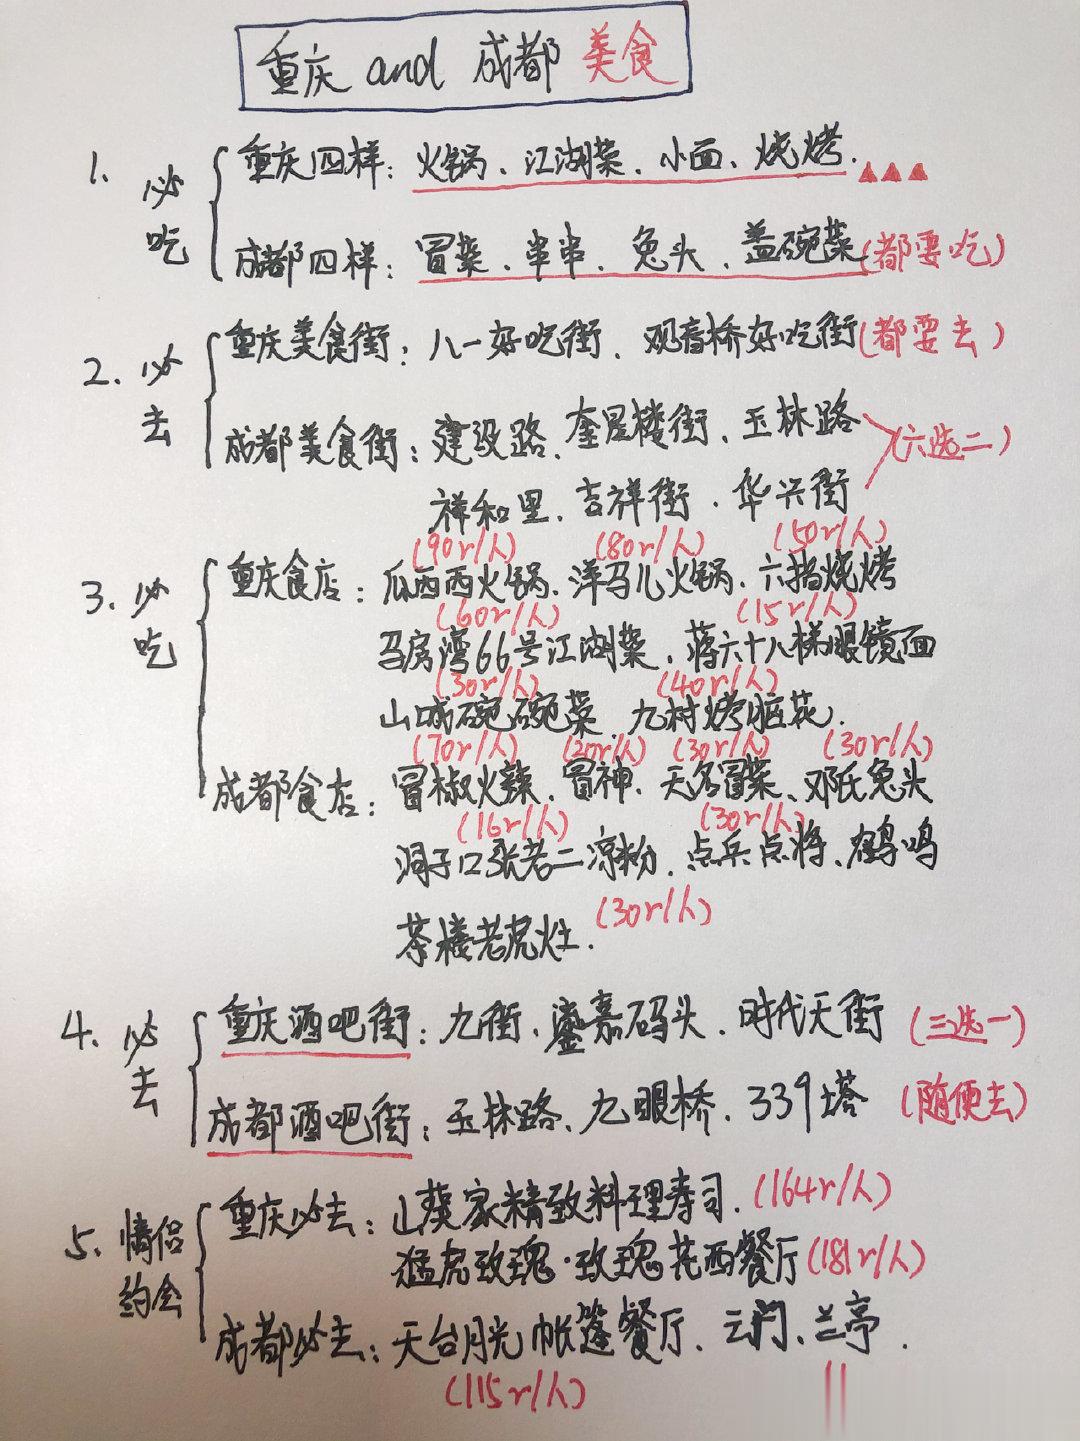 重庆 and 成都 美食
1. 必吃
重庆四样：火锅、江湖菜、小面、烧烤.
成都四样：冒菜、串串、兔头、盖碗菜(都要吃)
2. 必去
重庆美食街：八一好吃街、观音桥好吃街(都要去)
成都美食街：建设路、奎星楼街、玉林路
(六选二)
祥和里、吉祥街、华兴街
3. 必吃
(90r/人) (80r/人) (50r/人)
重庆食店：瓜西西火锅、洋马儿火锅、六指烧烤
(60r/人) (15r/人)
马房湾66号江湖菜、蒋六十八梯眼镜面
(30r/人) (40r/人)
山城碗碗菜、九村烤脑花.
(70r/人) (20r/人) (30r/人) (30r/人)
成都食店：冒椒火辣、冒神、天名冒菜、邓氏兔头
(16r/人) (30r/人)
洞子口张老二凉粉、点兵点将、鹤鸣
茶楼老虎灶. (30r/人)
4. 必去
重庆酒吧街：九街、鎏嘉码头、时代天街 (三选一)
成都酒吧街：玉林路、九眼桥、339塔 (随便去)
5. 情侣约会
重庆必去：山葵家精致料理寿司. (164r/人)
猛虎玫瑰·玫瑰花西餐厅(181r/人)
成都必去：天台月光帐篷餐厅、云门、兰亭.
(115r/人)